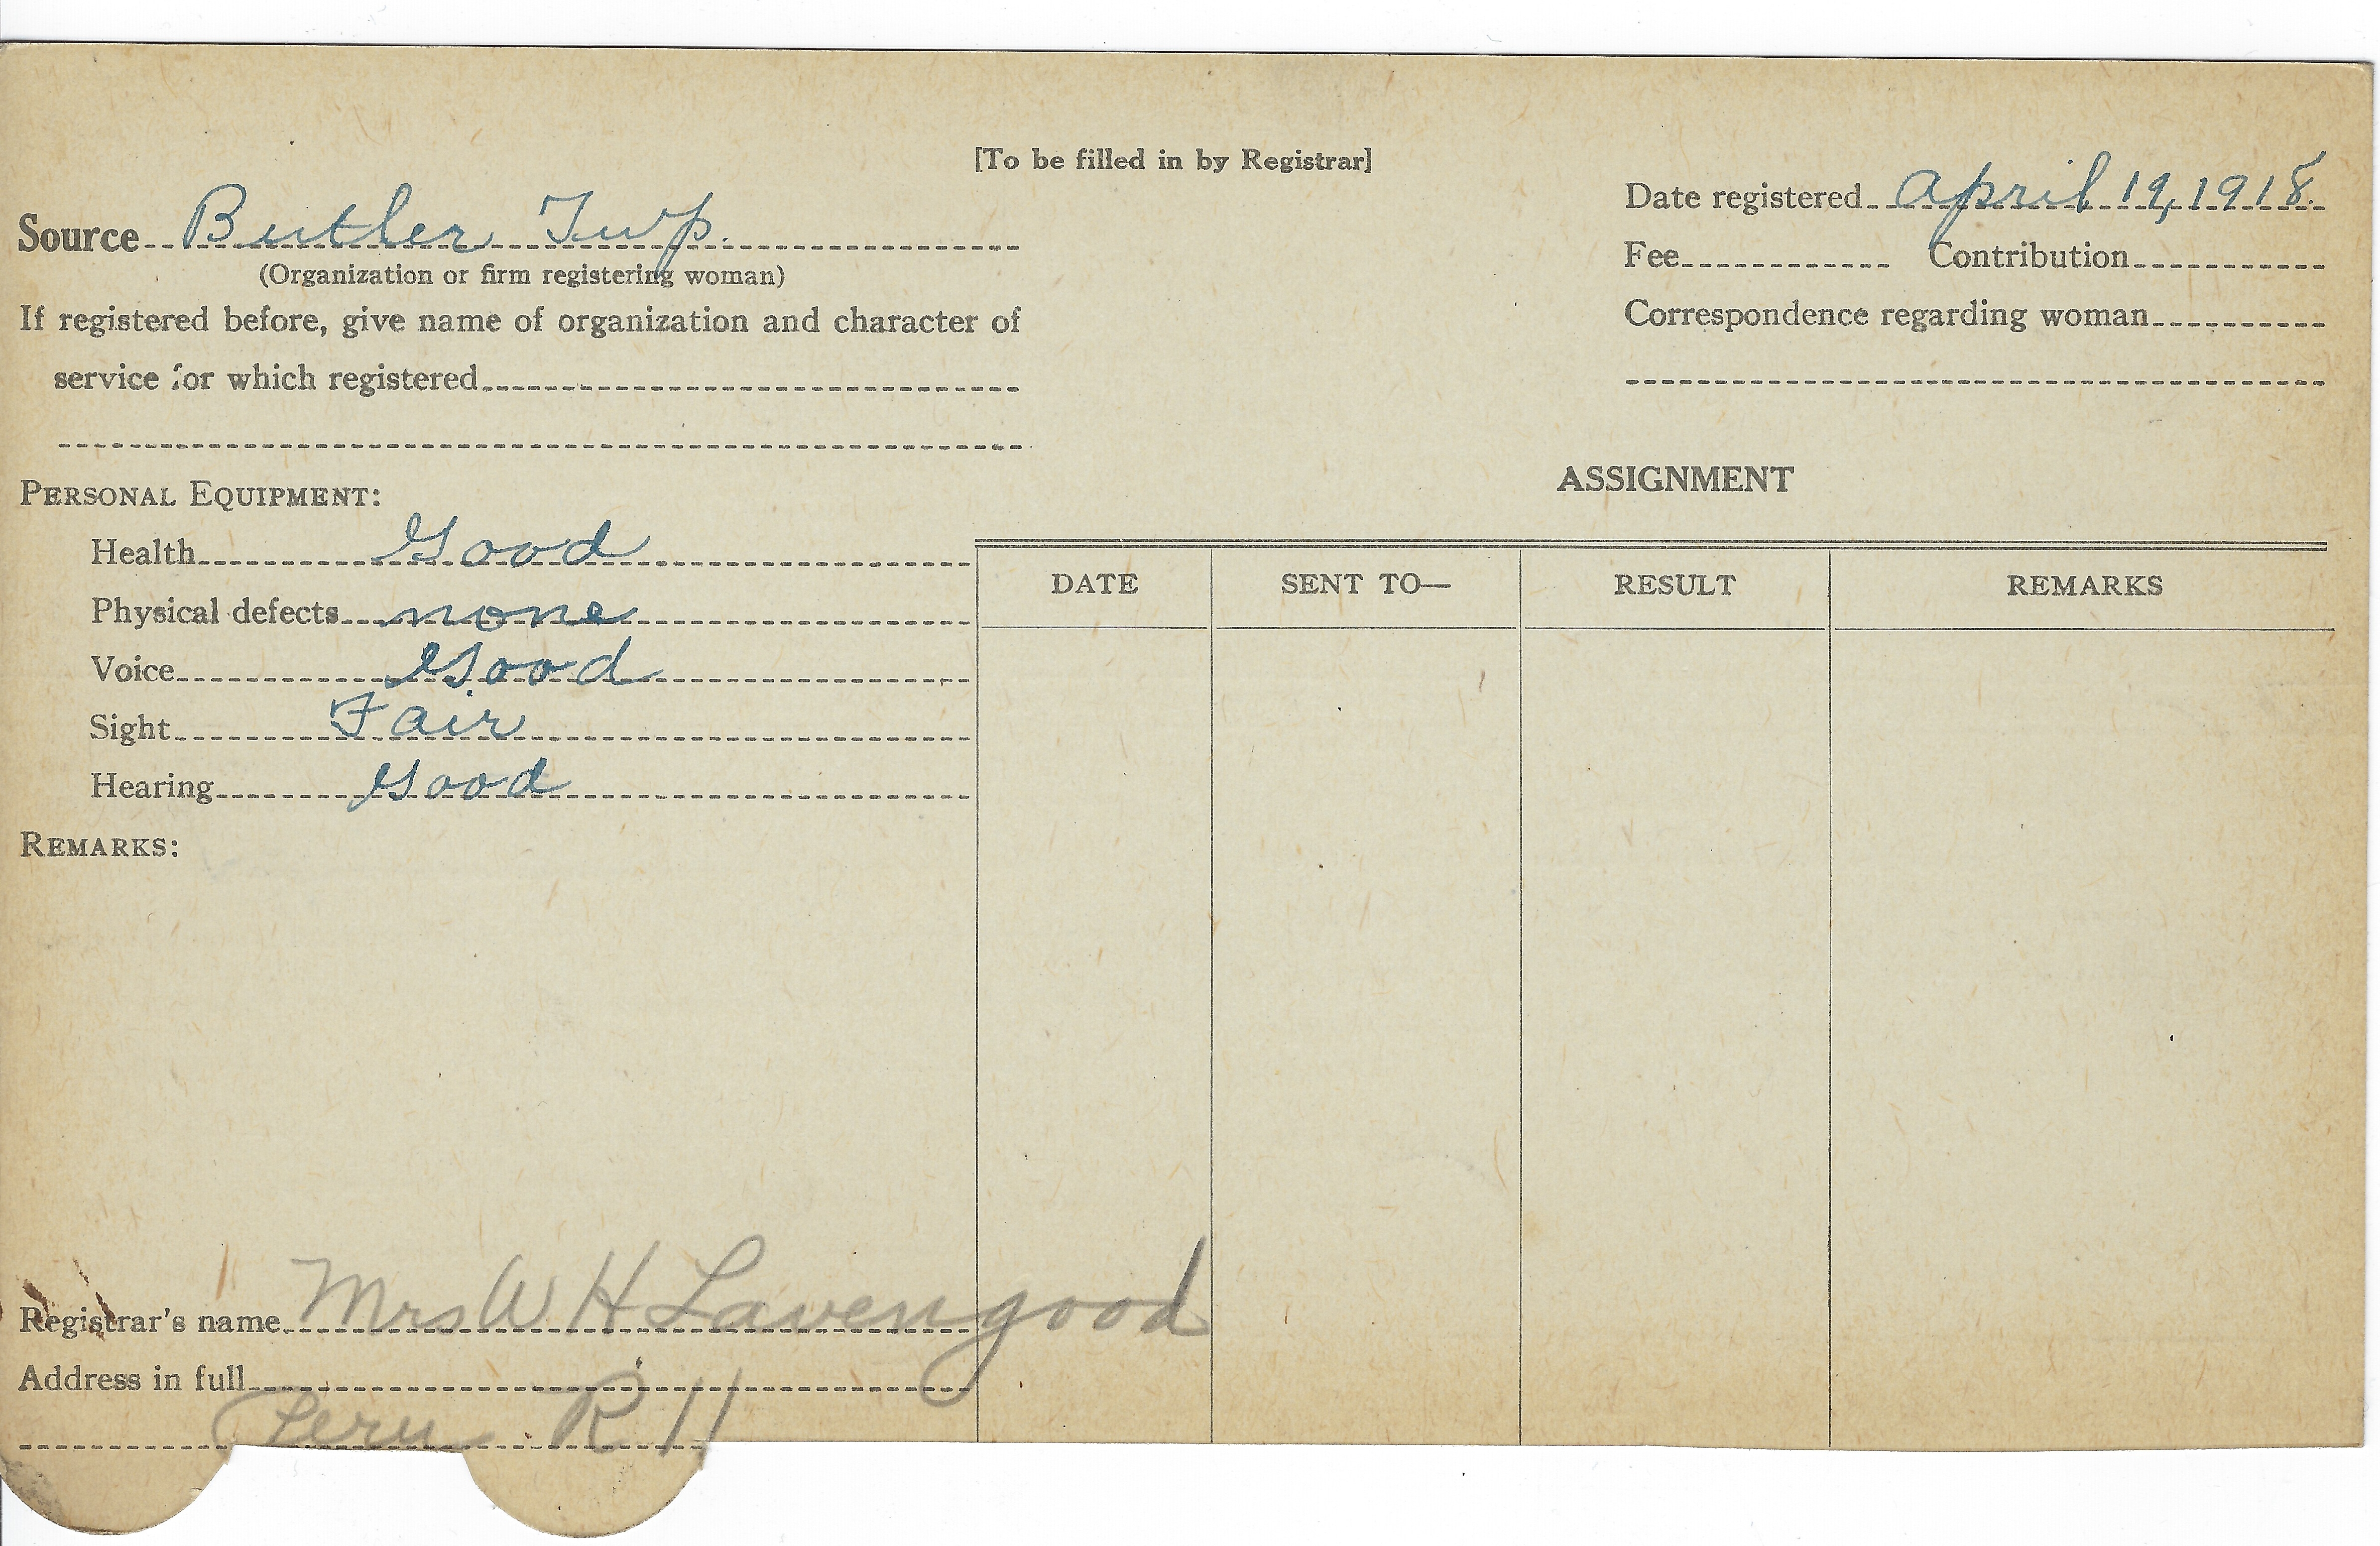 [To be filled in by Registrar]
Source Butler Twp.
(Organization or firm registering woman)
If registered before, give name of organization and character of
service for which registered
Date registered April 19, 1918.
Fee Contribution
Correspondence regarding woman
PERSONAL EQUIPMENT:
Health Good
Physical defects none
Voice Good
Sight Fair
Hearing Good
REMARKS:
ASSIGNMENT
DATE SENT TO— RESULT REMARKS
Registrar's name Mrs W H Lavengood
Address in full
Peru R 11